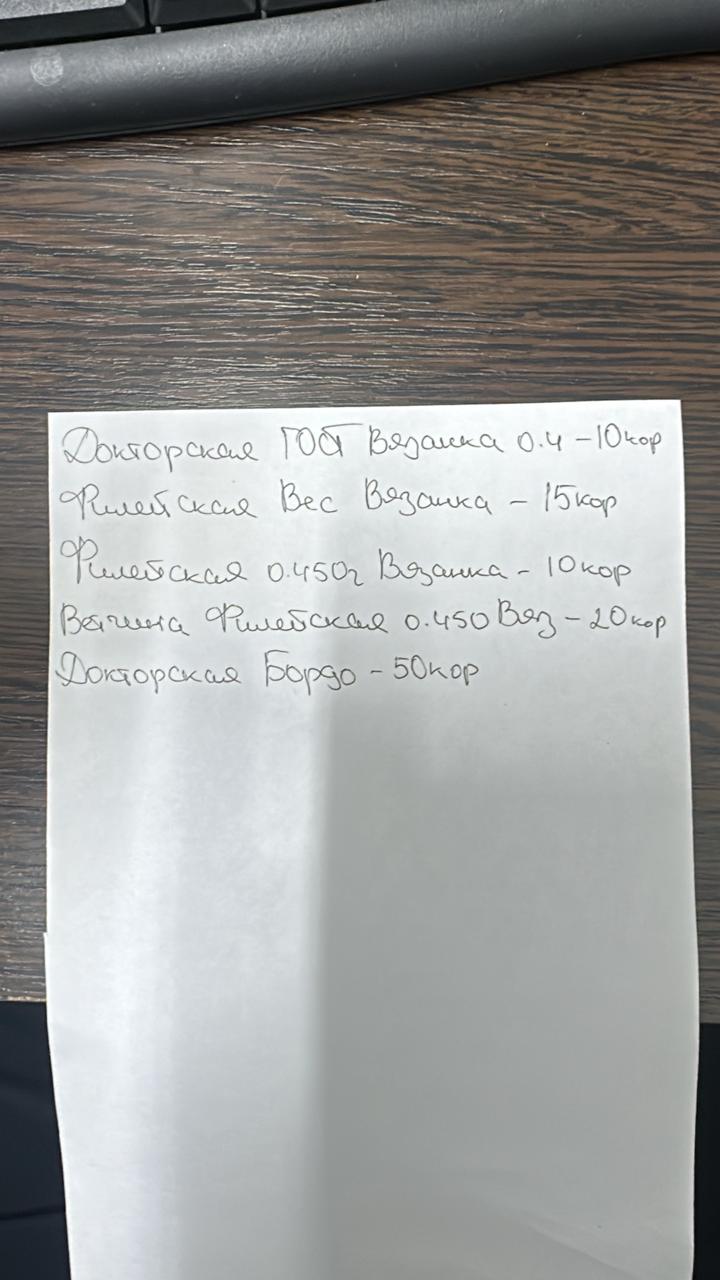 Докторская ГОСТ Вязанка 0.4 - 10кор
Филейская Вес Вязанка - 15кор
Филейская 0.450г Вязанка - 10кор
Ветчина Филейская 0.450 Вяз - 20кор
Докторская Бордо - 50кор